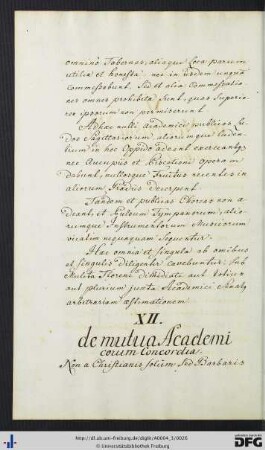 omnino Tabernas, aliaque Loca parum
utilia et honesta: nec in iisdem unquam
commessabunt. Sed et aliae Commessatio
nes omnes prohibitae sunt, quas Superio
res ipsorum non permiserunt.
Ad haec nulli Academici publicos Lu
dos Sagittariorum, aliorumque luden
tium in hoc Oppido adeant, exerceantque,
nec Aucupiis et Piscationi operam
dabunt, nullosque Fructus recentes in
aliorum Praediis decerpent.
Tandem et publicas Choreas non a
deant, et Pulsum Tympanorum, alio
rumque Instrumentorum Musicorum
vicatim nequaquam sequentur.
Haec omnia et singula ab omnibus
et singulis diligenter cavebuntur sub
Mulcta Floreni dimidiati aut totius
aut plurium juxta Academici Senatus
arbitrariam aestimationem.
XII.
de mutua Academi
corum Concordia.
Non a Christianis solum sed Barbaris
http://dl.ub.uni-freiburg.de/diglit/A0004_1/0020
© Universitätsbibliothek Freiburg
gefördert durch die
DFG